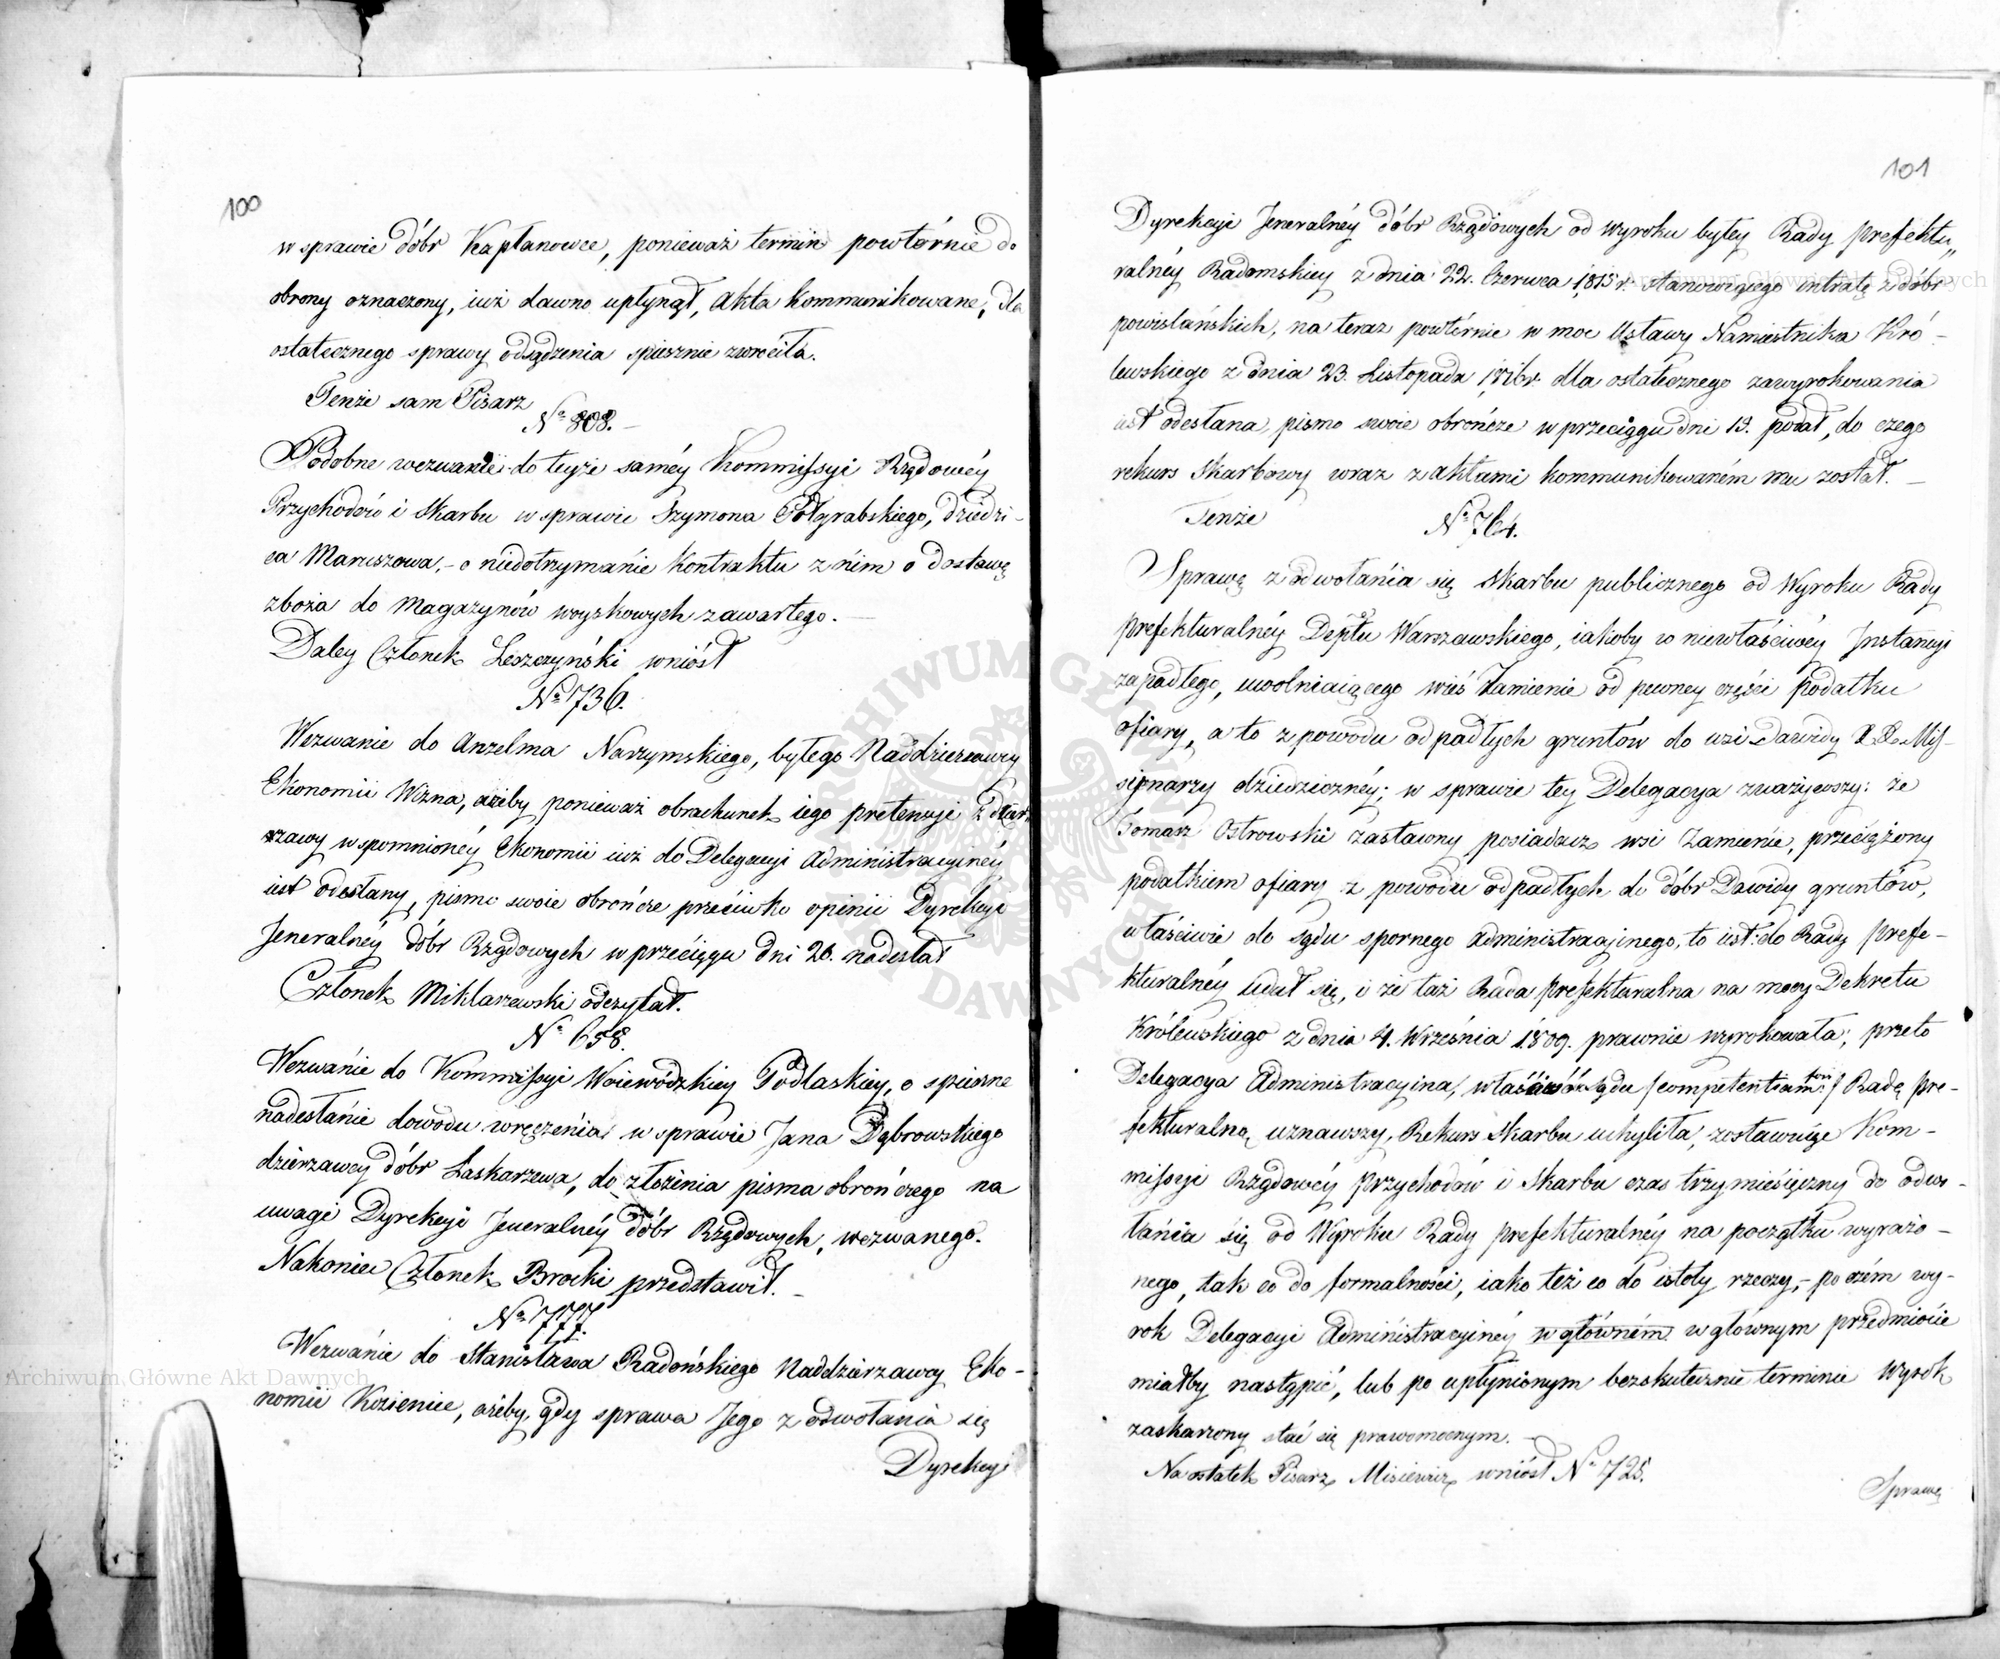 100
w sprawie dóbr Kapłanowce, ponieważ termin powtórnie do
obrony oznaczony, iuż dawno upłynął, akta kommunikowane, dla
ostatecznego sprawy odsądzenia spiesznie zwróciła.
Tenże sam Pisarz
No 808.
Podobne wezwanie do teyże saméy Kommissyi Rządowéy
Przychodów i Skarbu w sprawie Szymona Połgrabskiego, dziedzi-
ca Maruszowa, - o niedotrzymanie kontraktu z nim o dostawę
zboża do Magazynów woyskowych zawartego.
Daley Członek Leszczyński wniósł
No 736.
Wezwanie do Anzelma Narzymskiego, byłego Naddzierzawcy
Ekonomii Wizna, ażeby ponieważ obrachunek iego pretensyi z dzier-
rzawy wspomnionéy Ekonomii iuż do Delegacyi Administracyinéy
iest odesłany, pismo swoie obrończe przeciwko opinii Dyrekcyi
Jeneralnéy dóbr Rządowych w przeciągu dni 26. nadesłał
Członek Miklaszewski odczytał.
No 658.
Wezwanie do Kommissyi Woiewódzkiey Podlaskiey, o spieszne
nadesłanie dowodu wręczenia w sprawie Jana Dąbrowskiego
dzierzawcy dóbr Łaskarzewa, do złożenia pisma obrończego na
uwagi Dyrekcyi Jeneralnéy dóbr Rządowych, wezwanego.
Nakoniec Członek Brocki przedstawił.
No 777.
Wezwanie do Stanisława Radońskiego Naddzierzawcy Eko-
nomii Kozienice, ażeby, gdy sprawa Jego z odwołania się
Dyrekcyi
101
Dyrekcyi Jeneralnéy dóbr Rządowych od wyroku byłey Rady prefektu„
ralnéy Radomskiey z dnia 22. Czerwca 1815 r. stanowiącego intratę z dóbr
powiślańskich, na teraz powtórnie w moc Ustawy Namiestnika Kró-
lewskiego z dnia 23. Listopada 1816r. dla ostatecznego zawyrokowania
iest odesłana, pismo swoie obrończe w przeciągu dni 19. podał, do czego
rekurs skarbowy wraz z aktami kommunikowaném mu został.
Tenże
No 764.
Sprawę z odwołania się Skarbu publicznego od Wyroku Rady
prefekturalnéy Deptu Warszawskiego, iakoby w niewłaściwéy Instancyi
zapadłego, uwolniaiącego wieś Zamienie od pewney części podatku
ofiary, a to z powodu odpadłych gruntów do wsi Dawidy X.X. Mis-
sionarzy dziedziczney; w sprawie tey Delegacya zważywszy: że
Tomasz Ostrowski zastawny posiadacz wsi Zamienie, przeciążony
podatkiem ofiary z powodu odpadłych do dóbr Dawidy gruntów,
właściwie do sądu spornego Administracyinego, to iest: do Rady prefe-
kturalnéy udał się, i że taż Rada prefekturalna na mocy Dekretu
Królewskiego z dnia 4. Września 1809. prawnie wyrokowała; przeto
Delegacya Administracyina, właściwość Sądu /competentiam fori/ Radę pre-
fekturalną uznawszy, Rekurs Skarbu uchyliła, zostawuiąc Kom-
missyi Rządowéy Przychodów i Skarbu czas trzymiesięczny do odwo-
łania się od Wyroku Rady prefekturalnéy na początku wyrażo-
nego, tak co do formalności, iako też co do istoty rzeczy, - po czém wy-
rok Delegacyi Administracyinéy w główném w głównym przedmiocie
miałby nastąpić, lub po upłynionym bezskutecznie terminie Wyrok
zaskarzony stać się prawomocnym.
Na ostatek Pisarz Misiewicz wniósł No 725.
Sprawę
Archiwum Główne Akt Dawnych
Archiwum Główne Akt Dawnych
ARCHIWUM GŁÓWNE AKT DAWNYCH